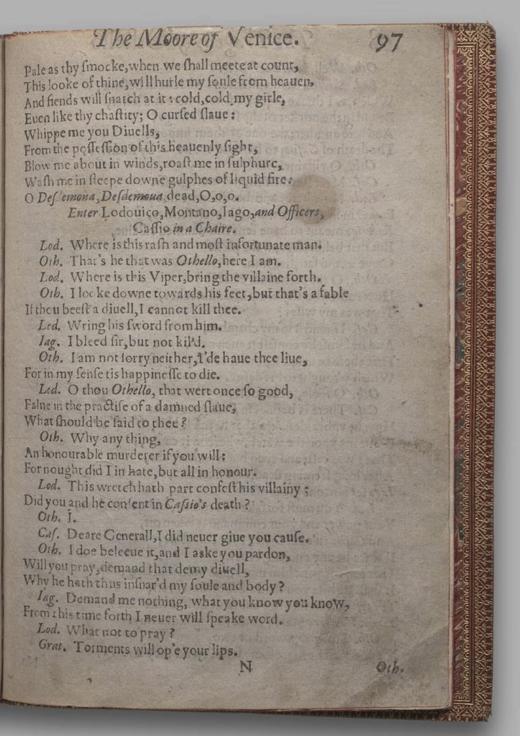 The Moore of Venice. 97
Pale as thy smocke, when we shall meete at count,
This looke of thine, will hurle my soule from heauen,
And fiends will snatch at it: cold, cold, my girle,
Euen like thy chastity; O cursed slaue:
Whippe me you Diuells,
From the possession of this heauenly sight,
Blow me about in winds, roast me in sulphure,
Wash me in steepe downe gulphes of liquid fire:
O Desdemona, Desdemona, dead, O, o, o.
Enter Lodouico, Montano, Iago, and Officers,
Cassio in a Chaire.
Lod. Where is this rash and most infortunate man.
Oth. That's he that was Othello, here I am.
Lod. Where is this Viper, bring the villaine forth.
Oth. I looke downe towards his feet, but that's a fable
If thou beest a diuell, I cannot kill thee.
Lod. Wring his sword from him.
Iag. I bleed sir, but not kild.
Oth. I am not sorry neither, I'de haue thee liue,
For in my sense tis happinesse to die.
Lod. O thou Othello, that wert once so good,
Falne in the practise of a damned slaue,
What should be said to thee?
Oth. Why any thing,
An honourable murderer if you will:
For nought did I in hate, but all in honour.
Lod. This wretch hath part confest his villainy:
Did you and he consent in Cassio's death?
Oth. I.
Cas. Deare Generall, I did neuer giue you cause.
Oth. I doe beleeue it, and I aske you pardon,
Will you pray, demand that demy diuell,
Why he hath thus insnar'd my soule and body?
Iag. Demand me nothing, what you know you know,
From this time forth I neuer will speake word.
Lod. What not to pray?
Grat. Torments will op'e your lips.
N Oth.